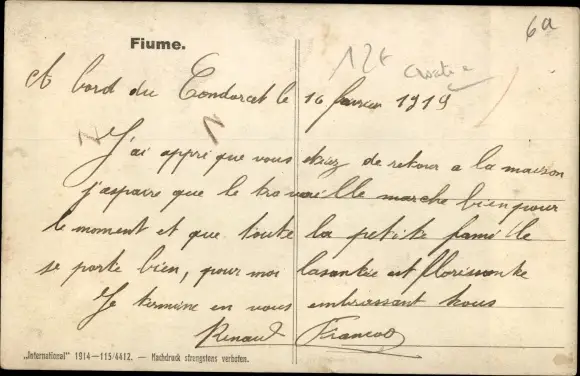 6a
Fiume.
12t
Croatie
A bord du Condorcet le 16 fevrier 1919
J'ai appri que vous étiez de retour a la maison
j'aspaire que le travaille marche bien pour
le moment et que toute la petite famille
se porte bien, pour moi la santée est florissante
Je termine en vous embrassant tous
Renaud François
„International" 1914—115/6412. — Nachdruck strengstens verboten.